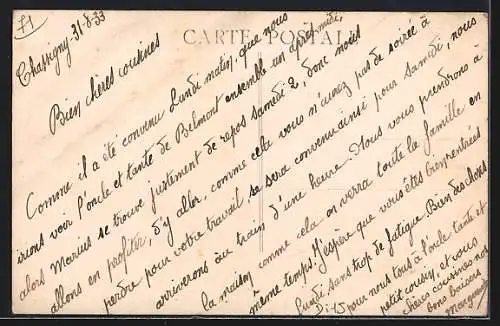 F1
CARTE POSTALE
Chassigny 31-8-33
Bien chères cousines
Comme il a été convenu Lundi matin, que nous
irions voir l'oncle et tante de Belmont ensemble un après midi,
alors Marius se trouve justement de repos samedi 2, donc nous
allons en profiter, d'y aller, comme cela vous n'aurez pas de soirée à
perdre pour votre travail, ce sera convenu ainsi pour samedi, nous
arriverons au train d'une heure. Nous vous prendrons à
la maison comme cela on verra toute la famille en
même temps. J'espère que vous êtes rentrées
Lundi sans trop de fatigue. Bien des choses
pour nous tous à l'oncle tante et
petit cousin, et vous
chères cousines nos
bons baisers